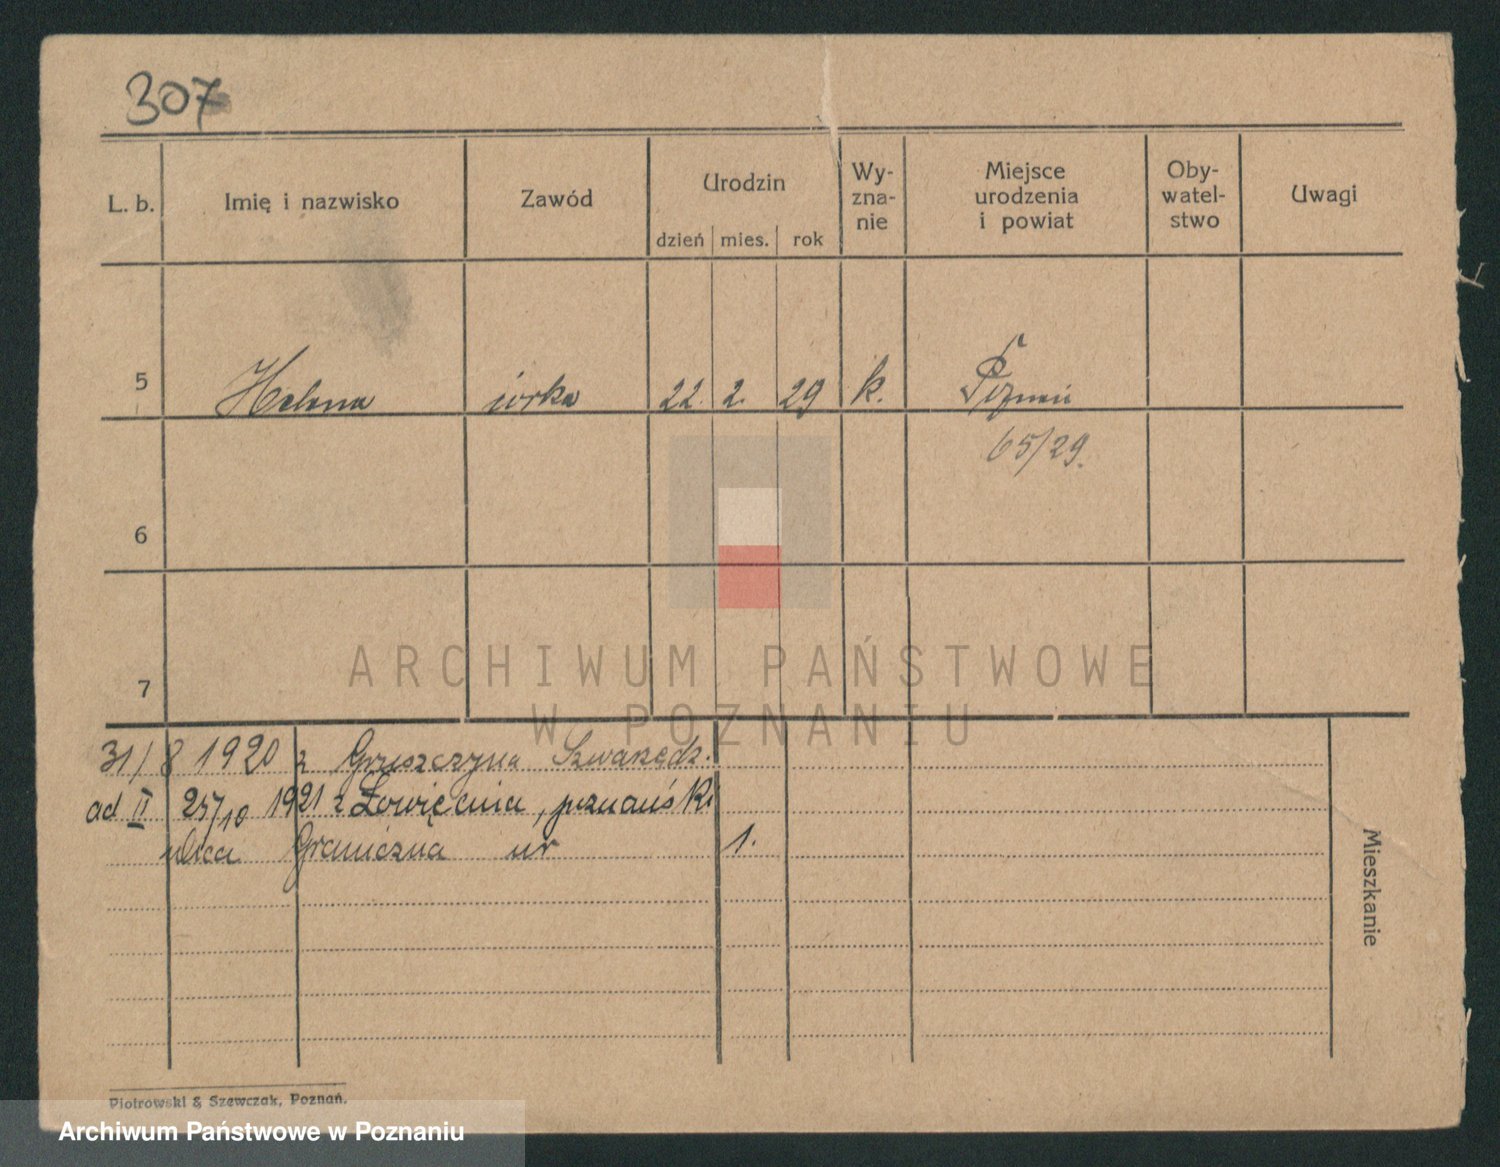 307
L. b. Imię i nazwisko Zawód Urodzin dzień mies. rok Wy-zna-nie Miejsce urodzenia i powiat Oby-watel-stwo Uwagi
5 Helena córka 22. 2. 29 k. Poznań
65/29.
6
7
ARCHIWUM PAŃSTWOWE
W POZNANIU
31/8 1920 z Gruszczyna Szwarzędz.
ad II 25/10 1921 z Łowięcina, poznański
ulica Graniczna nr 1.
Mieszkanie
Piotrowski & Szewczak, Poznań.
Archiwum Państwowe w Poznaniu